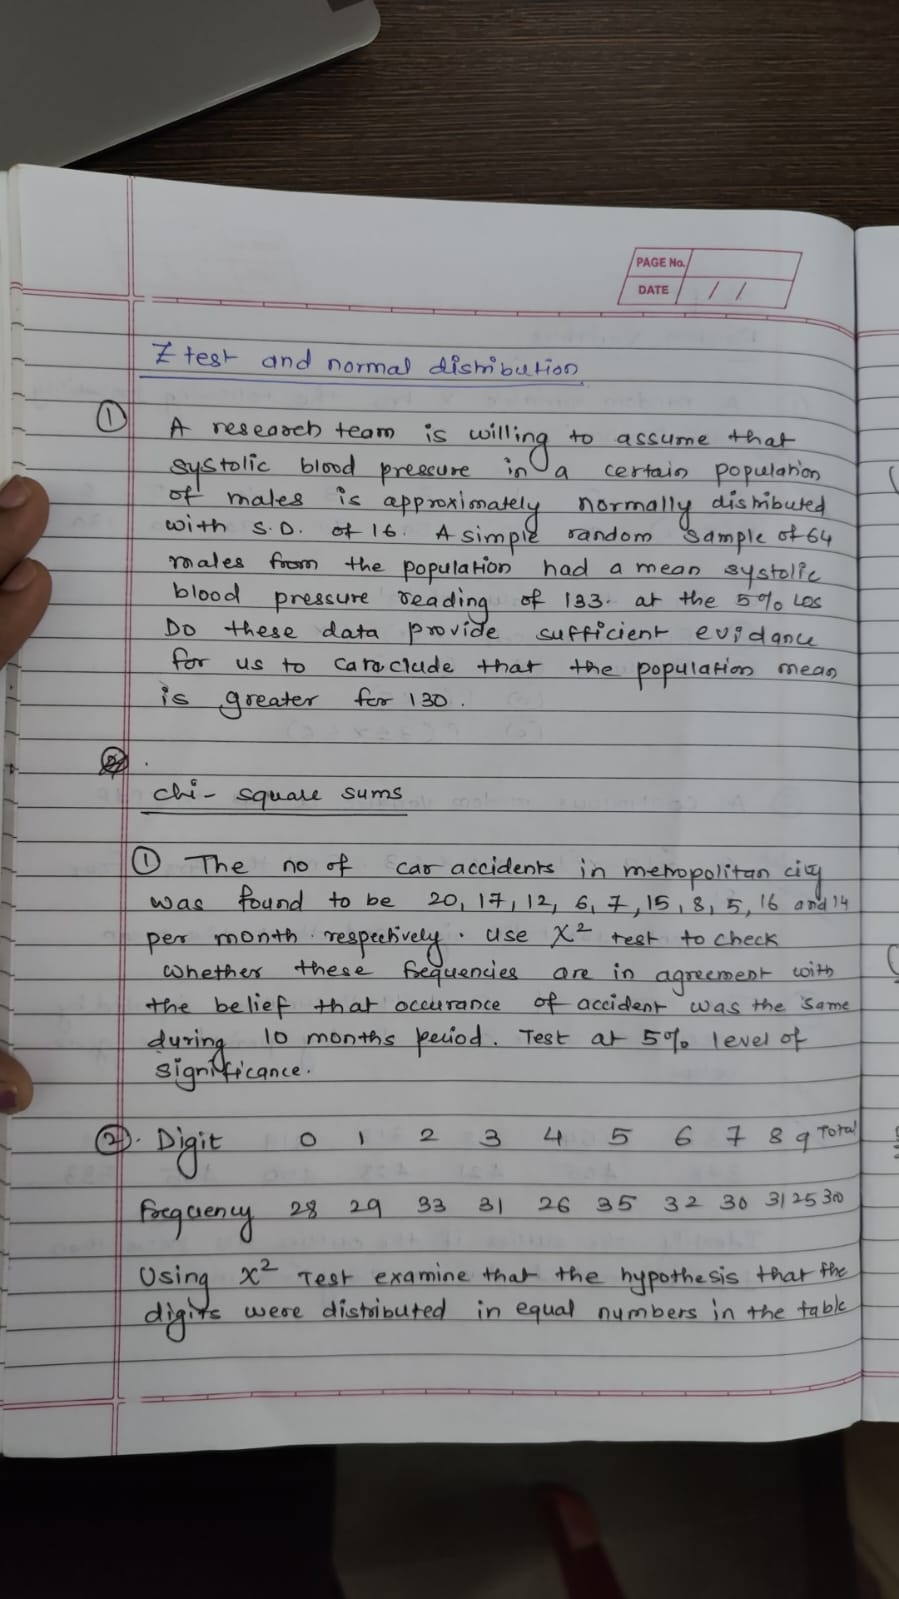 PAGE No.
DATE / /
Z test and normal distribution
① A research team is willing to assume that
systolic blood pressure in a certain population
of males is approximately normally distributed
with S.D. of 16. A simple random sample of 64
males from the population had a mean systolic
blood pressure reading of 133. at the 5% LOS
Do these data provide sufficient evidance
for us to conclude that the population mean
is greater for 130.
chi- square sums
① The no of car accidents in metropolitan city
was found to be 20, 17, 12, 6, 7, 15, 8, 5, 16 and 14
per month respectively. Use X² test to check
whether these frequencies are in agreement with
the belief that occurance of accident was the same
during 10 months period. Test at 5% level of
significance.
②. Digit 0 1 2 3 4 5 6 7 8 9 Total
frequency 28 29 33 31 26 35 32 30 31 25 300
Using x² Test examine that the hypothesis that the
digits were distributed in equal numbers in the table